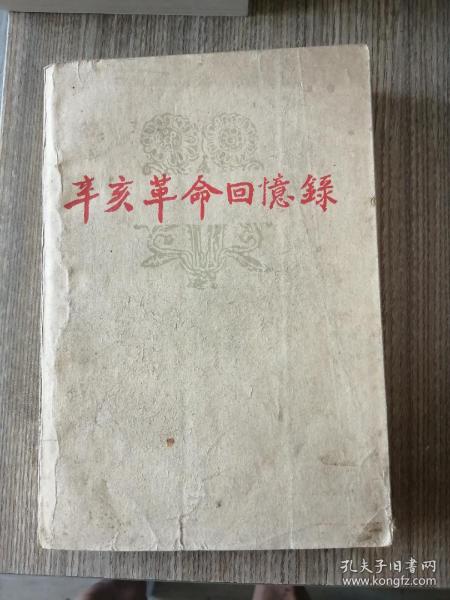 辛亥革命回憶錄
孔夫子旧书网
www.kongfz.com